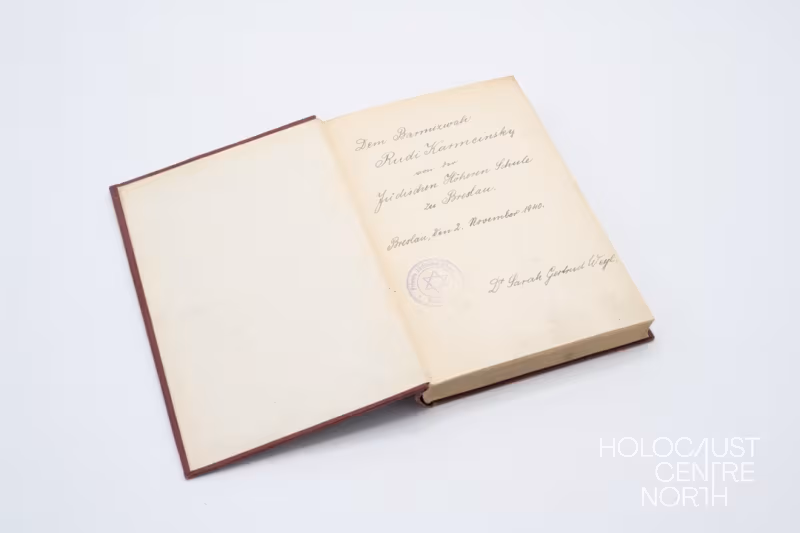 Dem Barmizwoh
Rudi Karmeinsky
von der
Jüdischen Höheren Schule
zu Breslau.
Breslau, den 2. November 1940.
Dr. Sarah Gertrud Weyl.
HOLOCAUST
CENTRE
NORTH